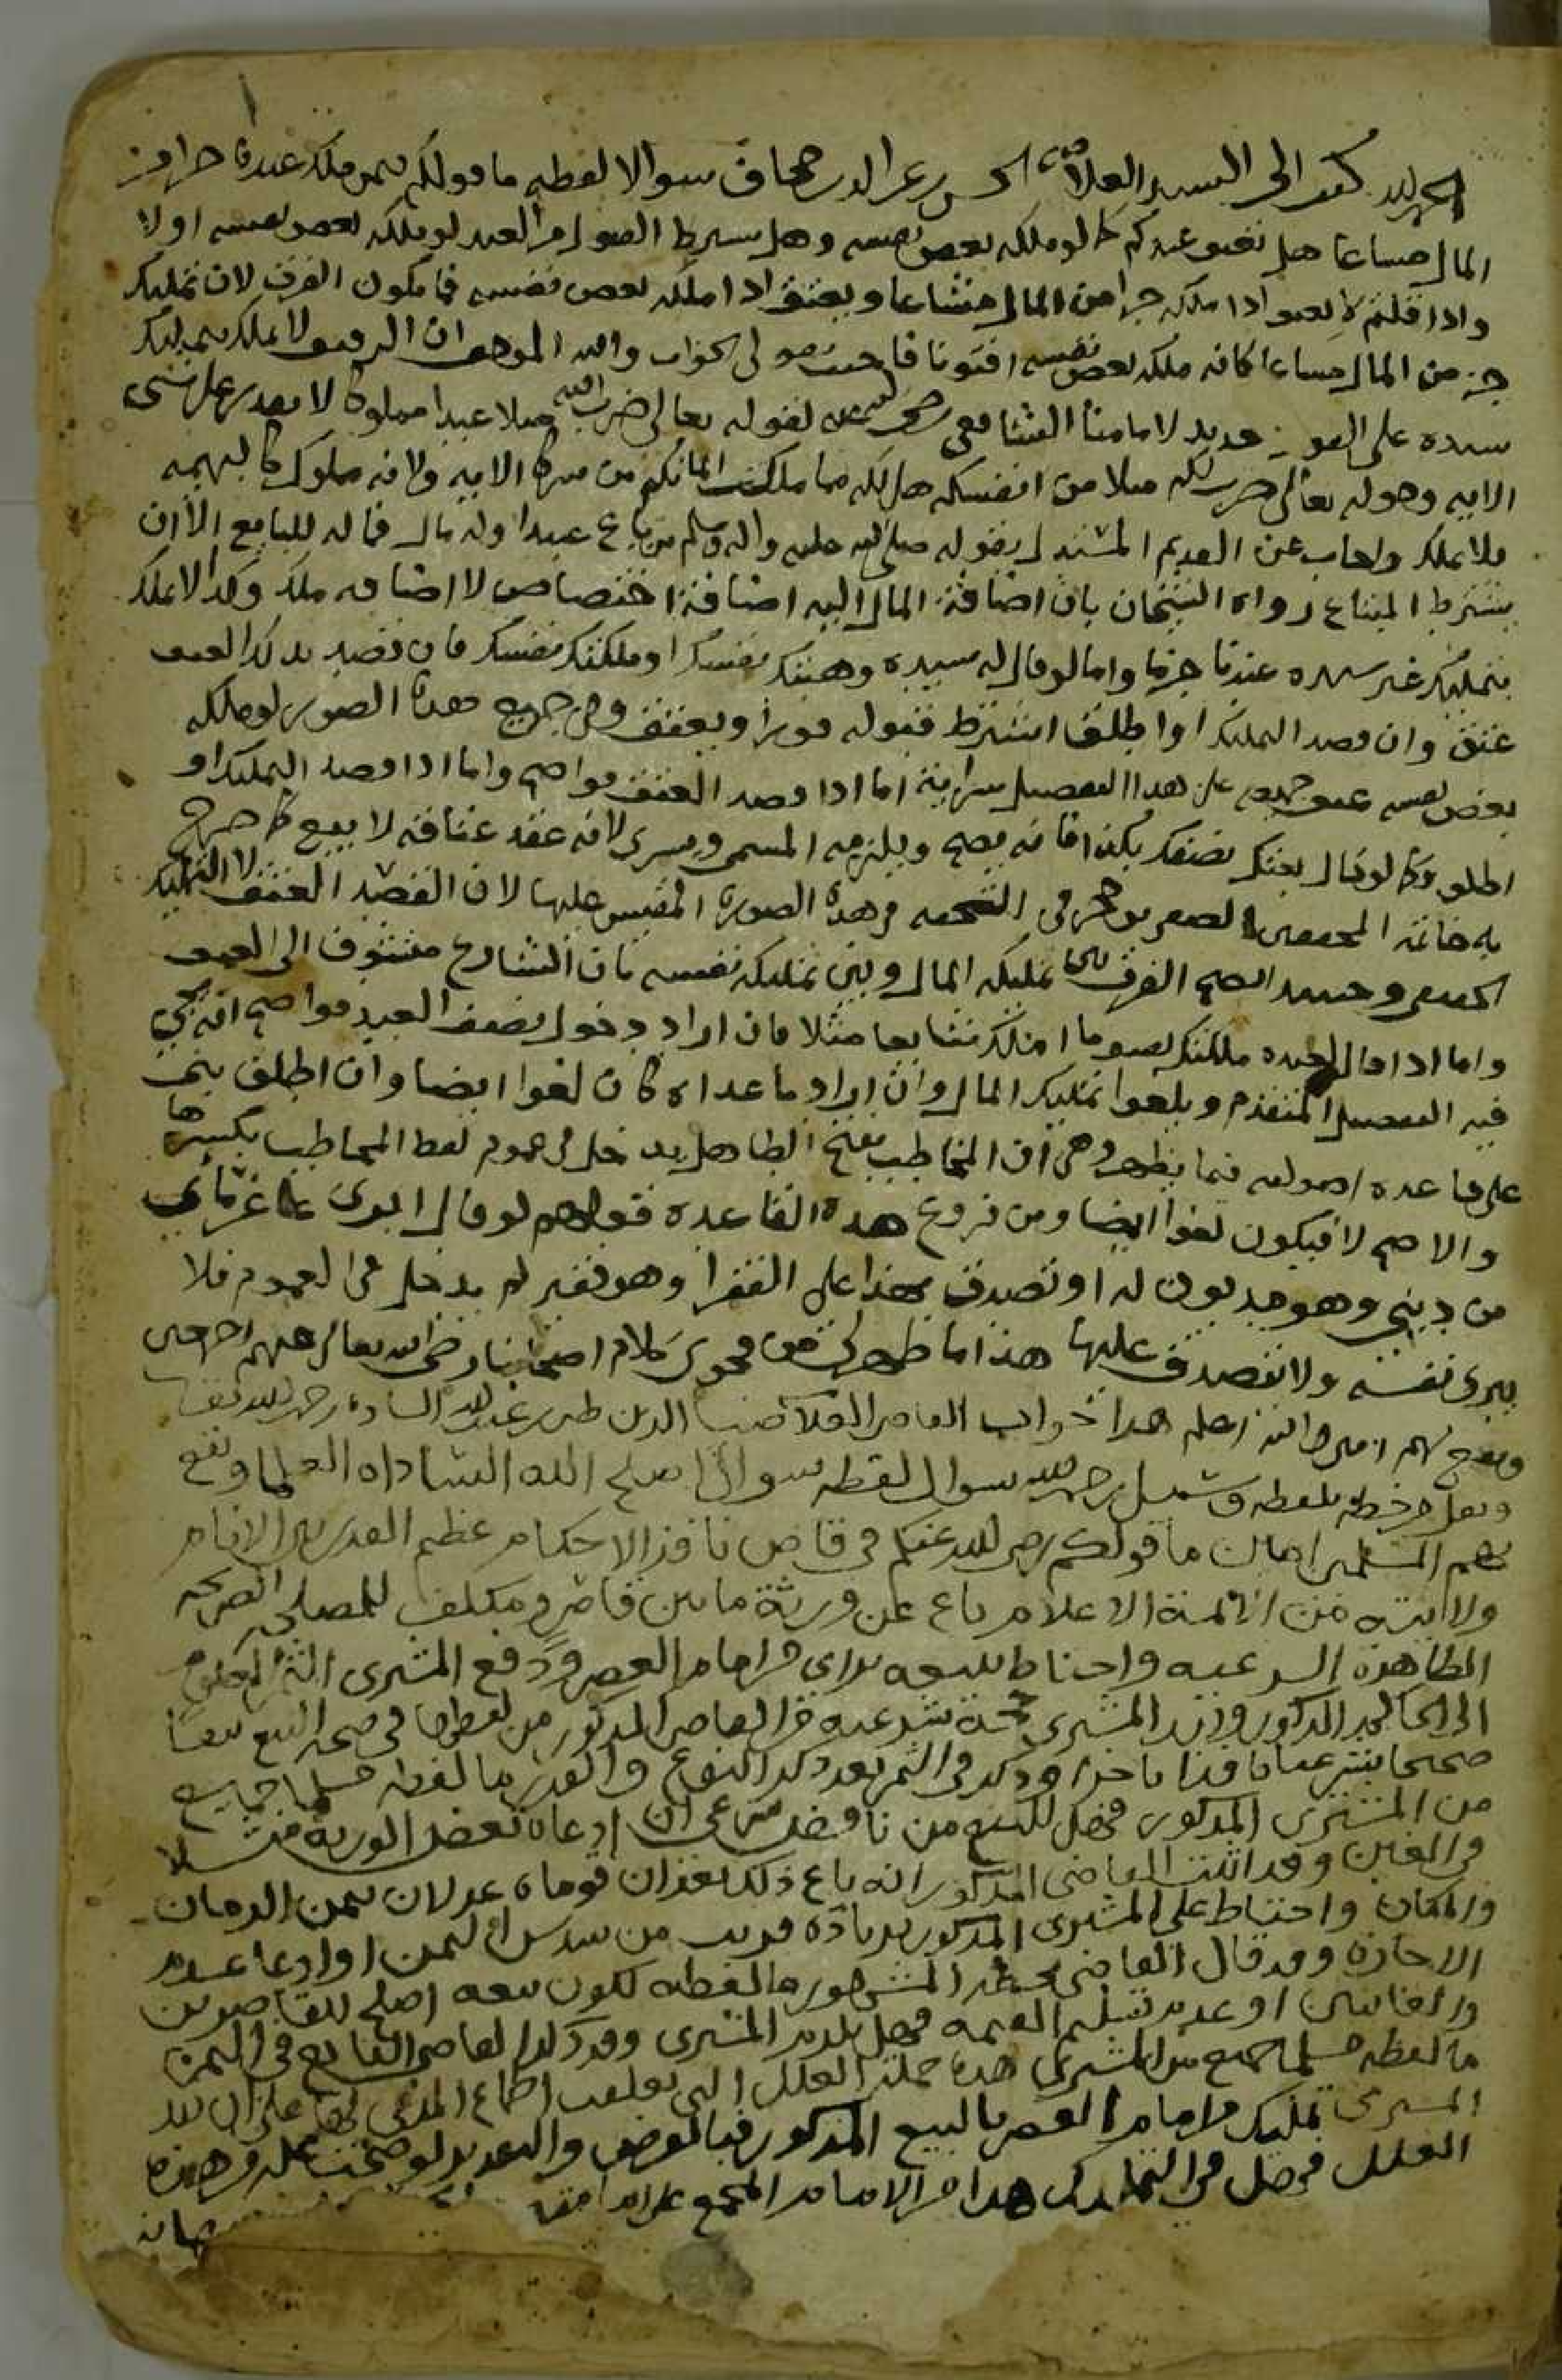 الحمد لله كتب الى السيد العلامة الحسن بن عز الدين جحاف سوالا لفظه ما قولكم فيمن ملك عبده جزا من
المال مشاعا هل تعتق عندكم كما لو ملكه بعض نفسه وهل يشترط القبول من العبد لو ملكه بعض نفسه او لا
واذا قلتم لا يعتق اذا ملكه جزا من المال مشاعا ويعتق اذا ملكه بعض نفسه فما يكون الفرق لان تمليك
جز من المال مشاعا كانه ملكه بعض نفسه افتونا فاجبت بقولي الجواب والله الموفق ان الرقيق لا يملك بتمليك
سيده على القول الجديد لامامنا الشافعي رضي الله عنه لقوله تعالى ضرب الله مثلا عبدا مملوكا لا يقدر على شي
الاية وقوله تعالى ضرب لكم مثلا من انفسكم هل لكم مما ملكت ايمانكم من شركا الاية ولانه مملوك كالبهيمة
فلا يملك واجاب عن القديم المستدل بقوله صلى الله عليه واله وسلم من باع عبدا وله مال فماله للبايع الا ان
يشترط المبتاع رواه الشيخان بان اضافة المال اليه اضافة اختصاص لا اضافة ملك وكذا لا يملك
بتمليك غير سيده عندنا جزما واما لو قال له سيده وهبتك نفسك او ملكتك نفسك فان قصد بذلك العتق
عتق وان قصد التمليك او اطلق اشترط قبوله فورا ويعتق وفي جميع هذه الصور لو ملكه
بعض نفسه عتق جميعه على هذا التفصيل سراية اما اذا قصد العتق فواضح واما اذا قصد التمليك او
اطلق فكما لو قال بعتك نصفك بكذا فانه يصح ويلزمه المسمى ويسري لانه عقد عتاقة لا بيع كما صرح
به خاتمة المحققين ابن حجر في التحفة في هذه الصورة المقيس عليها لان القصد العتق لا التمليك
الحقيقي وحينئذ اتضح الفرق بين تمليكه المال وبين تمليكه نفسه بان الشارع متشوف الى العتق
واما اذا قال لعبده ملكتك نصف ما املك مشاعا مثلا فان اراد دخول نصف العبد فواضح انه يجي
فيه التفصيل المتقدم ويلغوا تمليك المال وان اراد ما عداه كان لغوا ايضا وان اطلق ينبني
على قاعدة اصولية فيما يظهر وهي ان المخاطب بفتح الطا هل يدخل في عموم لفظ المخاطب بكسرها
والاصح لا فيكون لغوا ايضا ومن فروع هذه القاعدة قولهم لو قال ابرئ غرمائي
من ديني وهو مديون له او تصدق بهذا على الفقرا وهو فقير لم يدخل في العموم فلا
يبري نفسه ولا يتصدق عليها هذا ما ظهر لي من فحوى كلام اصحابنا رضي الله تعالى عنهم اجمعين
ونفع بهم امين والله اعلم هذا جواب القاضي العلامة الدين بن عبد الله السادة رحمه الله تعالى
ونقل من خطه بلفظه سئل رحمه الله سوال لفظه سوال اصلح الله السادة العلما ونفع
بهم المسلمين امين ما قولكم رضي الله عنكم في قاض نافذ الاحكام عظيم القدر بين الانام
ولايته من ائمة الاعلام باع عن ورثة ما بين قاصر ومكلف للمصلحة
الظاهرة الشرعية واحتاط للبيع براي من امام العصر ودفع المشتري الثمن المعلوم
الى الحاكم المذكور وبيد المشتري حجة شرعية من القاضي المذكور من لفظها في صحة البيع بيعا
صحيحا شرعيا نافذا ناجزا وذكر في الثمن بعد ذكر النوع والقدر ما لفظه مسلما جميع
من المشتري المذكور فهل للبيع من ناقض شرعي ان ادعاه بعض الورثة مثلا
في الغبن وقد اثبت القاضي المذكور انه باع ذلك بعد ان قوماه عدلان بثمن الزمان
والمكان واحتاط على المشتري المذكور بزيادة قريب من سدس الثمن او ادعا عدم
الاجازة وقد قال القاضي بخطه المشهور ما لفظه لكون بيعه اصلح للقاصرين
والغائبين او عدم تسليم القيمة فهل يلزم المشتري وقد ذكر القاضي البائع في الثمن
ما لفظه مسلما جميع من المشتري هذه جملة العلل التي تعلقت اطماع المدعي بها على ان بيد
المشتري تمليك من امام العصر بالبيع المذكور فبالفرض والتقدير لو صحت علة من هذه
العلل فهل في التمليك هذا من الامام المجمع على امامته